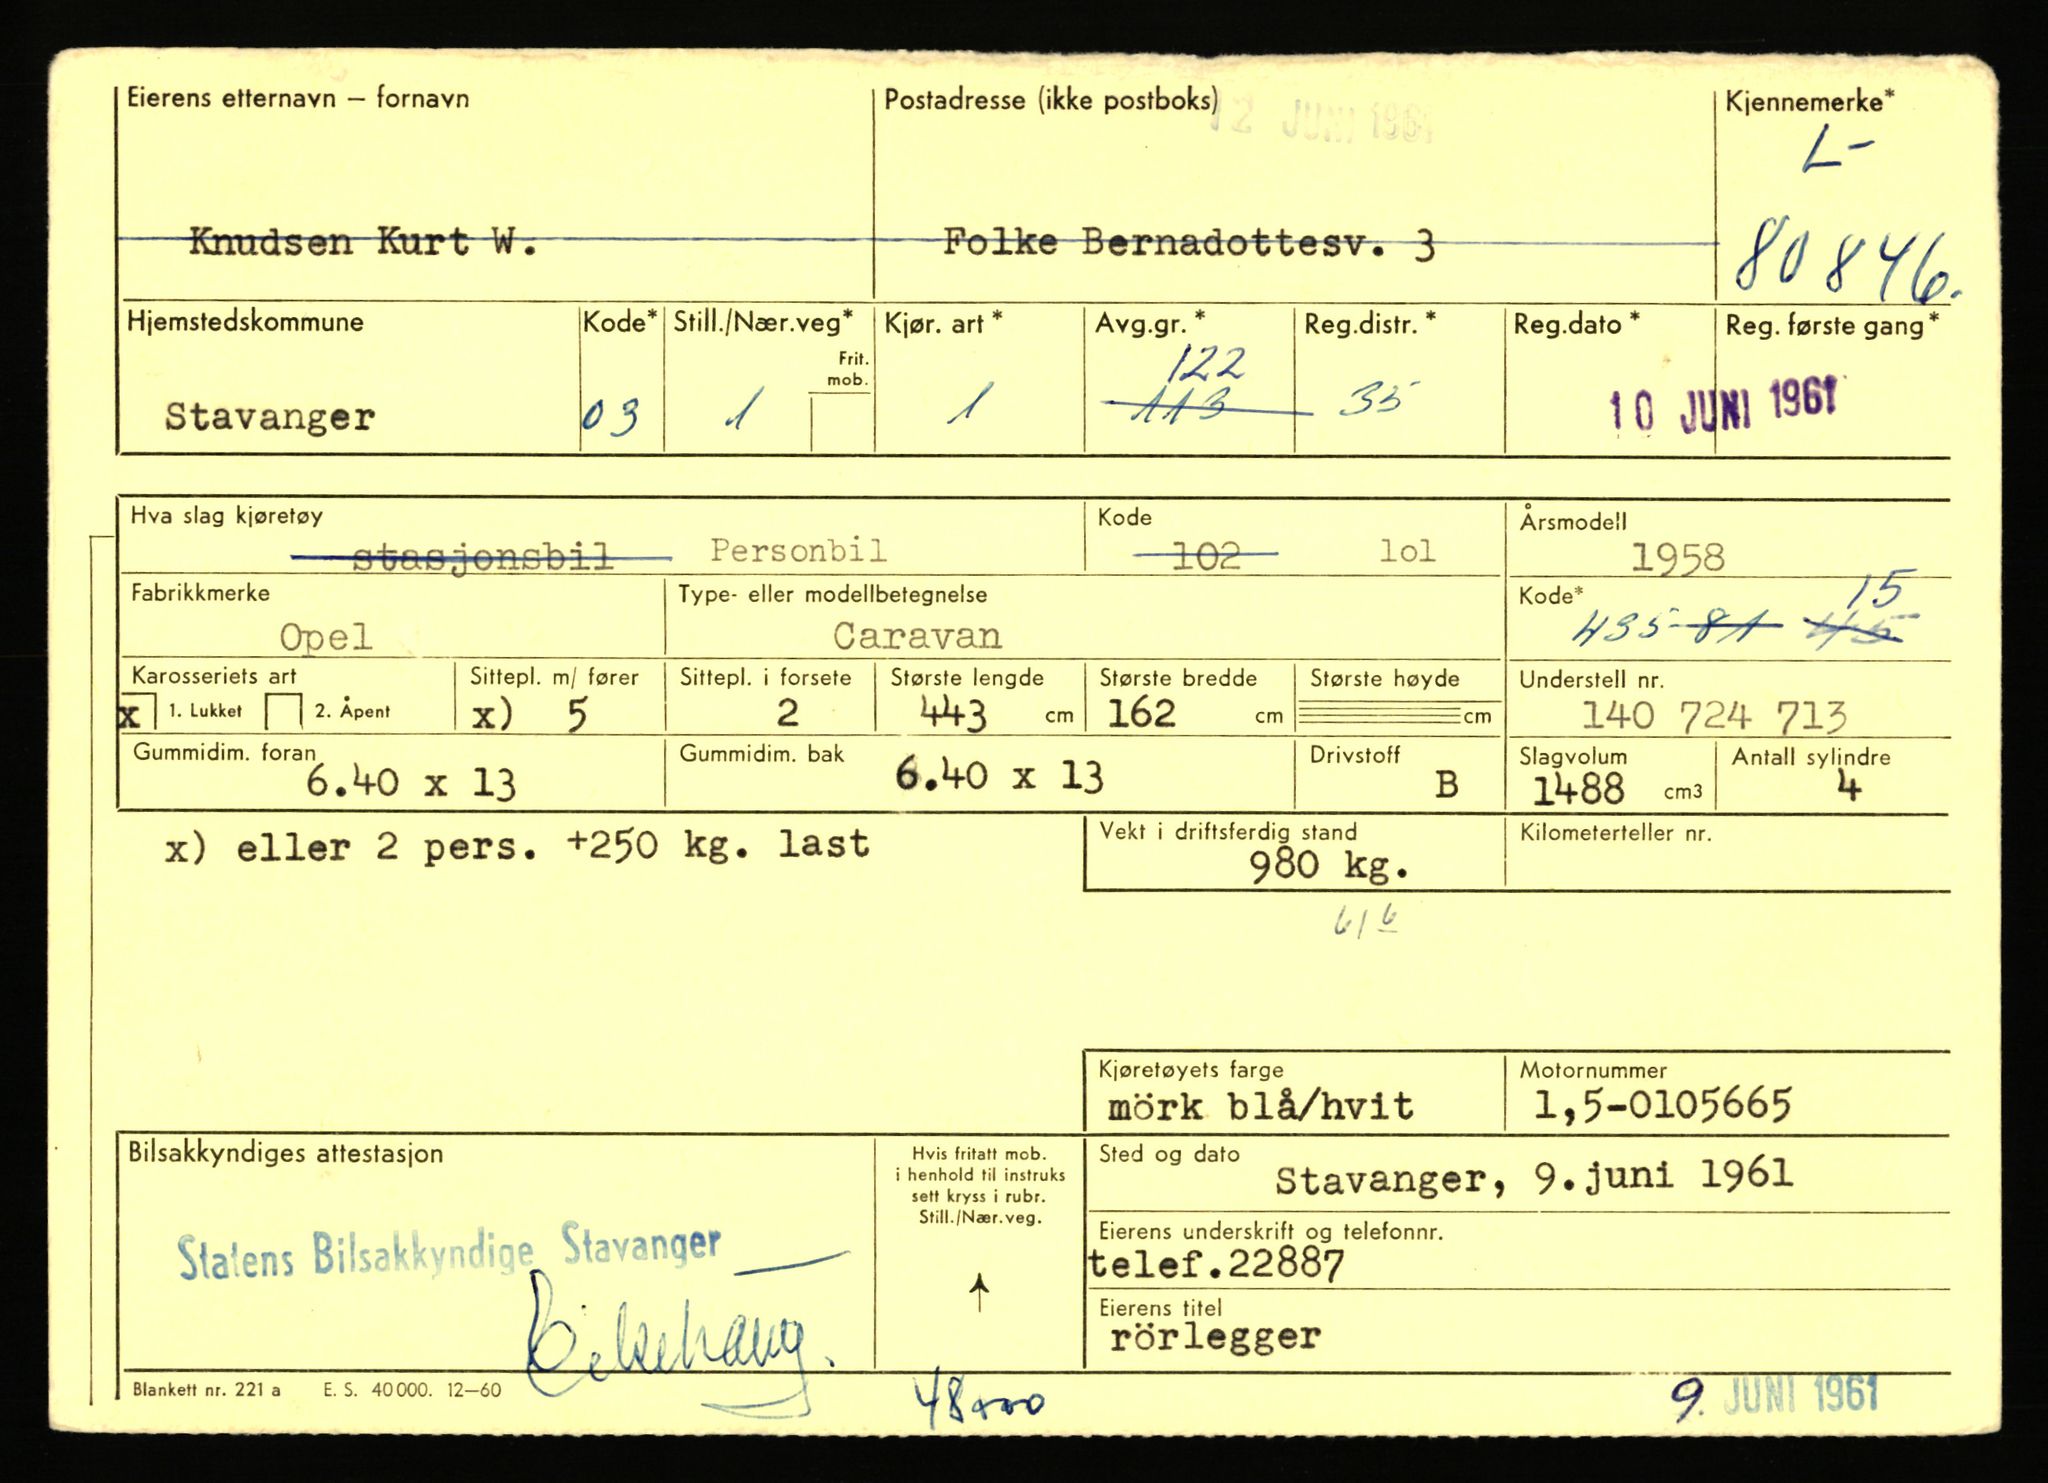 Eierens etternavn – fornavn
Postadresse (ikke postboks)
12 JUNI 1961
Kjennemerke*
L-
80846.
Knudsen Kurt W.
Folke Bernadottesv. 3
Hjemstedskommune
Kode*
Still./Nær.veg*
Frit. mob.
Kjør. art *
Avg.gr. *
Reg.distr. *
Reg.dato *
Reg. første gang*
122
Stavanger
03
1
1
113
33
10 JUNI 1961
Hva slag kjøretøy
stasjonsbil Personbil
Kode
102 lol
Årsmodell
1958
Fabrikkmerke
Opel
Type- eller modellbetegnelse
Caravan
Kode*
15
435-81 45
Karosseriets art
x 1. Lukket 2. Åpent
Sittepl. m/ fører
x) 5
Sittepl. i forsete
2
Største lengde
443 cm
Største bredde
162 cm
Største høyde
cm
Understell nr.
140 724 713
Gummidim. foran
6.40 x 13
Gummidim. bak
6.40 x 13
Drivstoff
B
Slagvolum
1488 cm3
Antall sylindre
4
x) eller 2 pers. +250 kg. last
Vekt i driftsferdig stand
980 kg.
Kilometerteller nr.
6/6
Kjøretøyets farge
mörk blå/hvit
Motornummer
1,5-0105665
Bilsakkyndiges attestasjon
Statens Bilsakkyndige Stavanger
Hvis fritatt mob.
i henhold til instruks
sett kryss i rubr.
Still./Nær.veg.
Sted og dato
Stavanger, 9.juni 1961
Eierens underskrift og telefonnr.
telef.22887
Eierens titel
rörlegger
Blankett nr. 221 a E. S. 40 000. 12–60
9. JUNI 1961